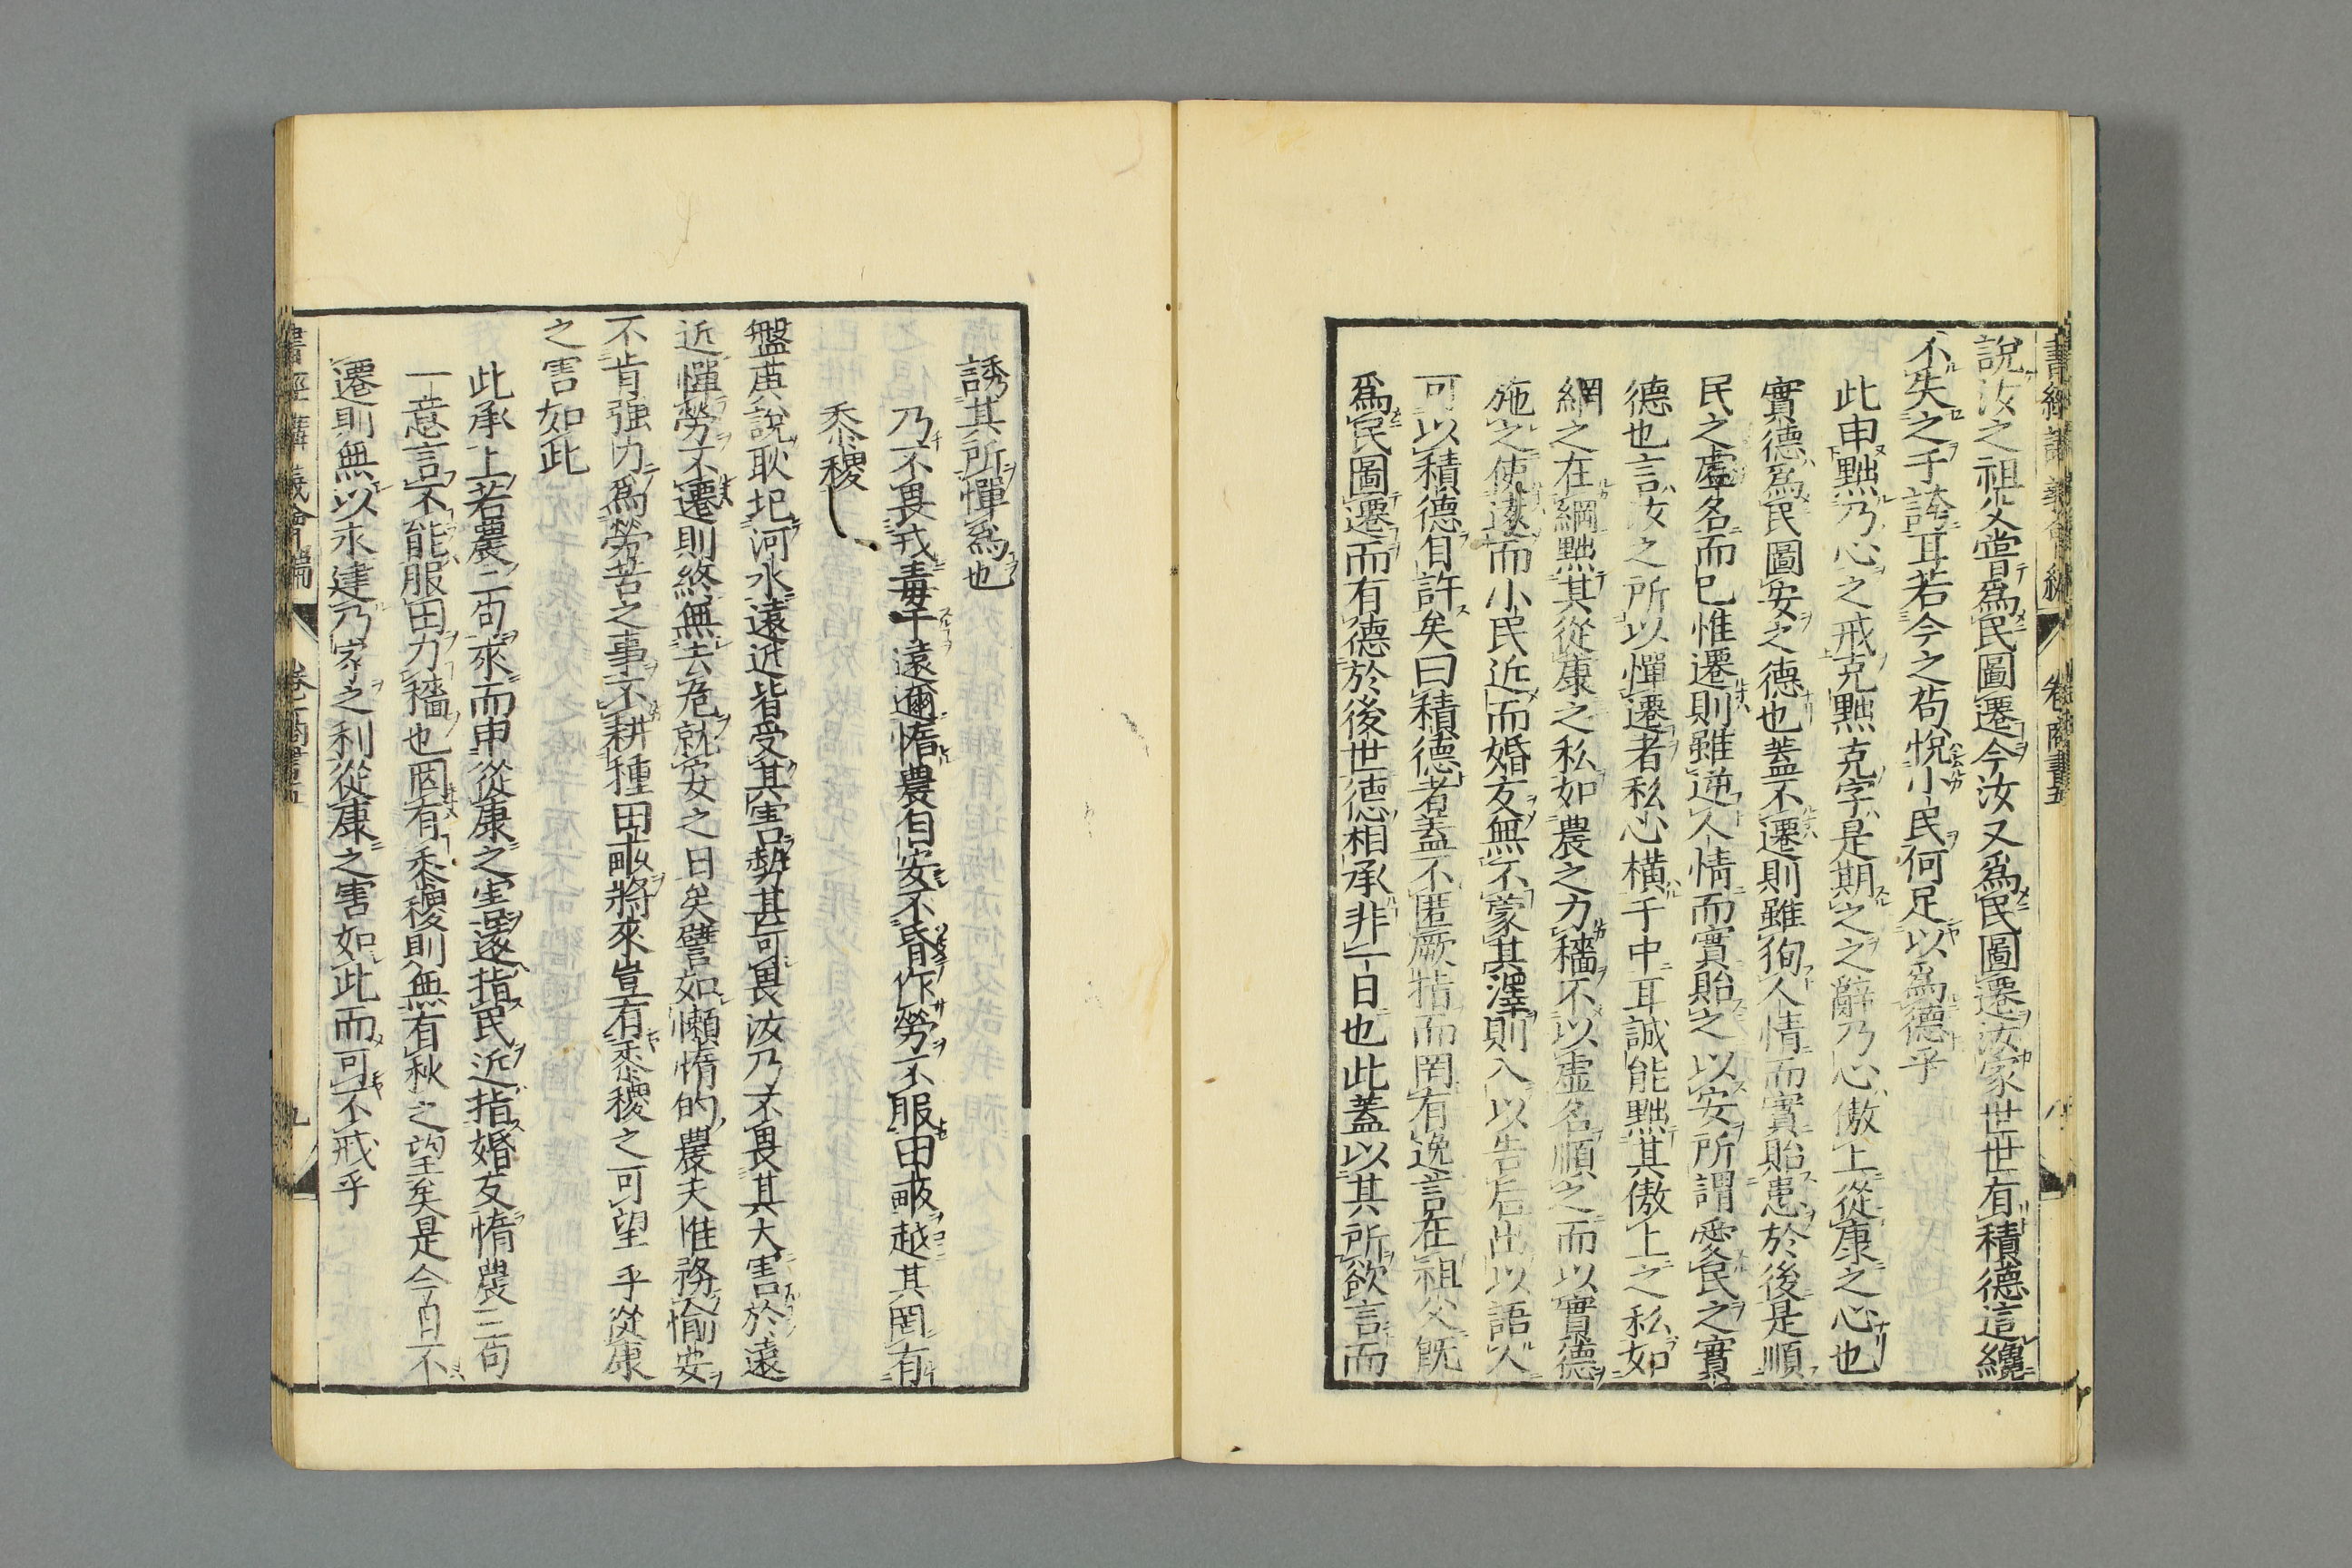 書經講義會編 卷 商書五 八
說汝之祖父嘗爲民圖遷今汝又爲民圖遷汝家世世有積德這纔
不失之于誇耳若今之苟悅小民何足以爲德乎
此申黜乃心之戒克黜克字是期之之辭乃心傲上從康之心也
實德爲民圖安之德也蓋不遷則雖徇人情而實貽患於後是順
民之虛名而已惟遷則雖逆人情而實貽之以安所謂愛民之實
德也言汝之所以憚遷者私心橫于中耳誠能黜其傲上之私如
網之在綱黜其從康之私如農之力穡不以虛名順之而以實德
施之使遠而小民近而婚友無不蒙其澤則入以告后出以語人
可以積德自許矣曰積德者蓋不匿厥指而罔有逸言在祖父既
爲民圖遷而有德於後世德相承非一日也此蓋以其所欲言而
誘其所憚爲也
乃不畏戎毒于遠邇惰農自安不昏作勞不服田畝越其罔有
黍稷
盤庚說耿圮河水遠近皆受其害勢甚可畏汝乃不畏其大害於遠
近憚勞不遷則終無去危就安之日矣譬如懶惰的農夫惟務偷安
不肯强力爲勞苦之事不耕種田畝將來豈有黍稷之可望乎從康
之害如此
此承上若農二句來而申從康之害遠指民近指婚友惰農三句
一意言不能服田力穡也罔有黍稷則無有秋之望矣是今日不
遷則無以永建乃家之利從康之害如此而可不戒乎
書經講義會編 卷 商書五 九